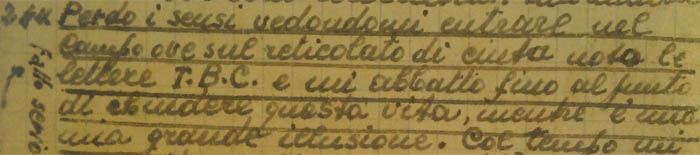 Perdo i sensi vedendomi entrare nel
Campo ove sul reticolato di cinta noto le
lettere T.B.C. e mi abbatto fino al punto
di chiudere questa vita, mentre è una
mia grande illusione. Col tempo mi
Fatto serio